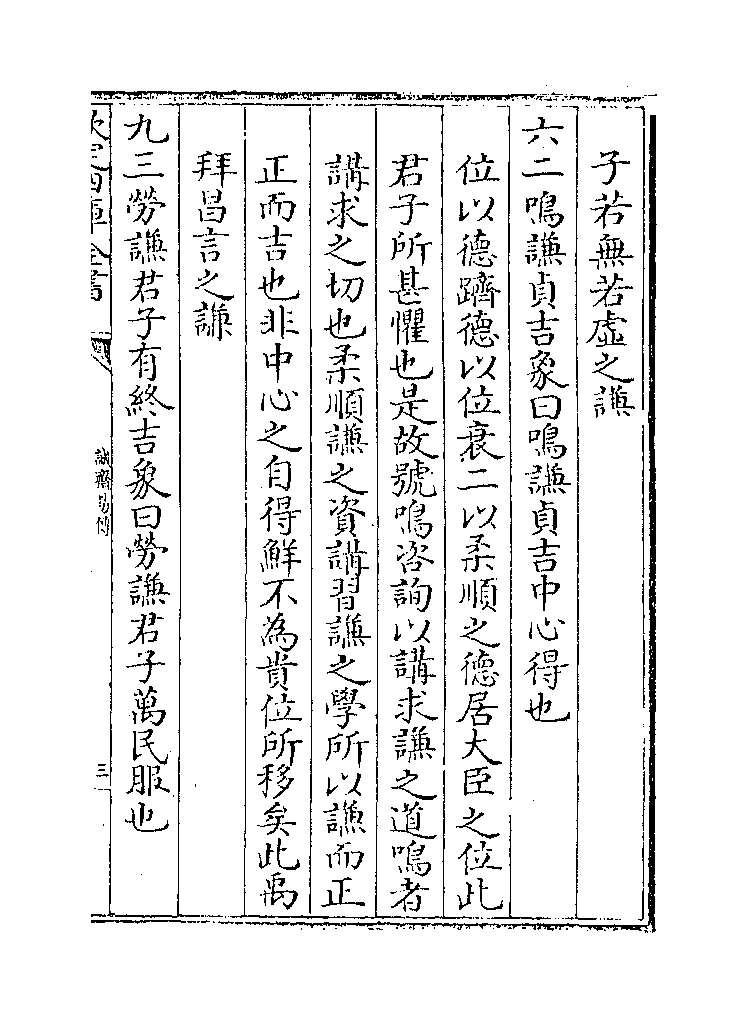 子若無若虛之謙
六二鳴謙貞吉象曰鳴謙貞吉中心得也
位以德躋德以位衰二以柔順之德居大臣之位此
君子所甚懼也是故號鳴咨詢以講求謙之道鳴者
講求之切也柔順謙之資講習謙之學所以謙而正
正而吉也非中心之自得鮮不為貴位所移矣此禹
拜昌言之謙
九三勞謙君子有終吉象曰勞謙君子萬民服也
欽定四庫全書
誠齋易傳
三